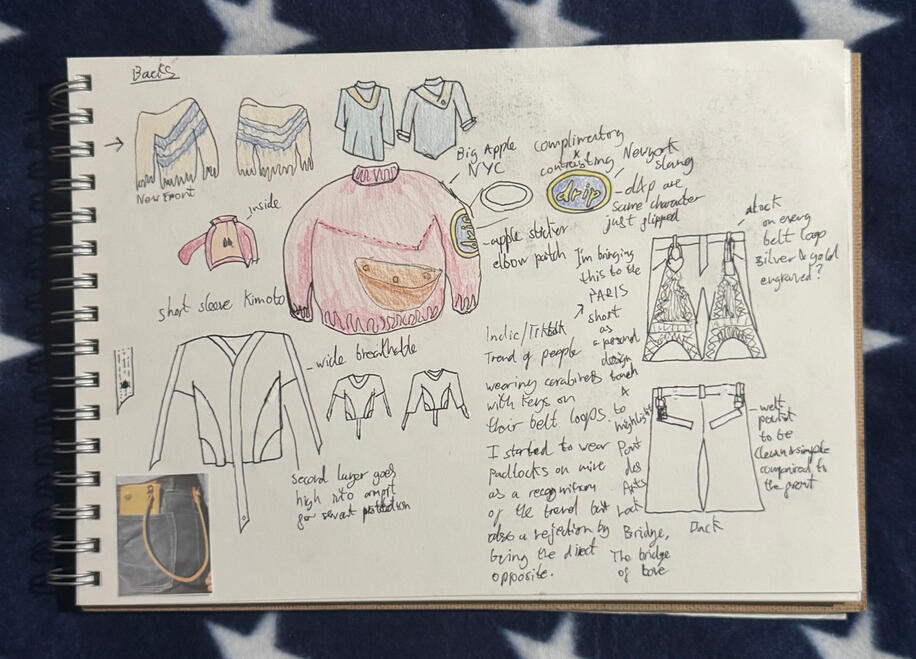 Backs
New Front
inside
Big Apple
NYC
complimentory
x
contrasting
Newyork
slang
drip
d&p are
same character
just flipped
drip
apple sticker
elbow patch
short sleeve Kimoto
wide breathable
second layer goes
high into armpit
for sweat protection
I'm bringing
this to the
PARIS
short
as
a personal
design
touch
to
highlight
Pont
des
Arts
Lock
Bridge,
The bridge
of love
Indie/Tiktok
Trend of people
wearing carabiners
with keys on
their belt loops.
I started to wear
Padlocks on mine
as a recognition
of the trend but
also a rejection by
being the direct
opposite.
on every
belt loop
silver & gold
engraved?
welt
pocket
to be
clean & simple
compaired to
the front